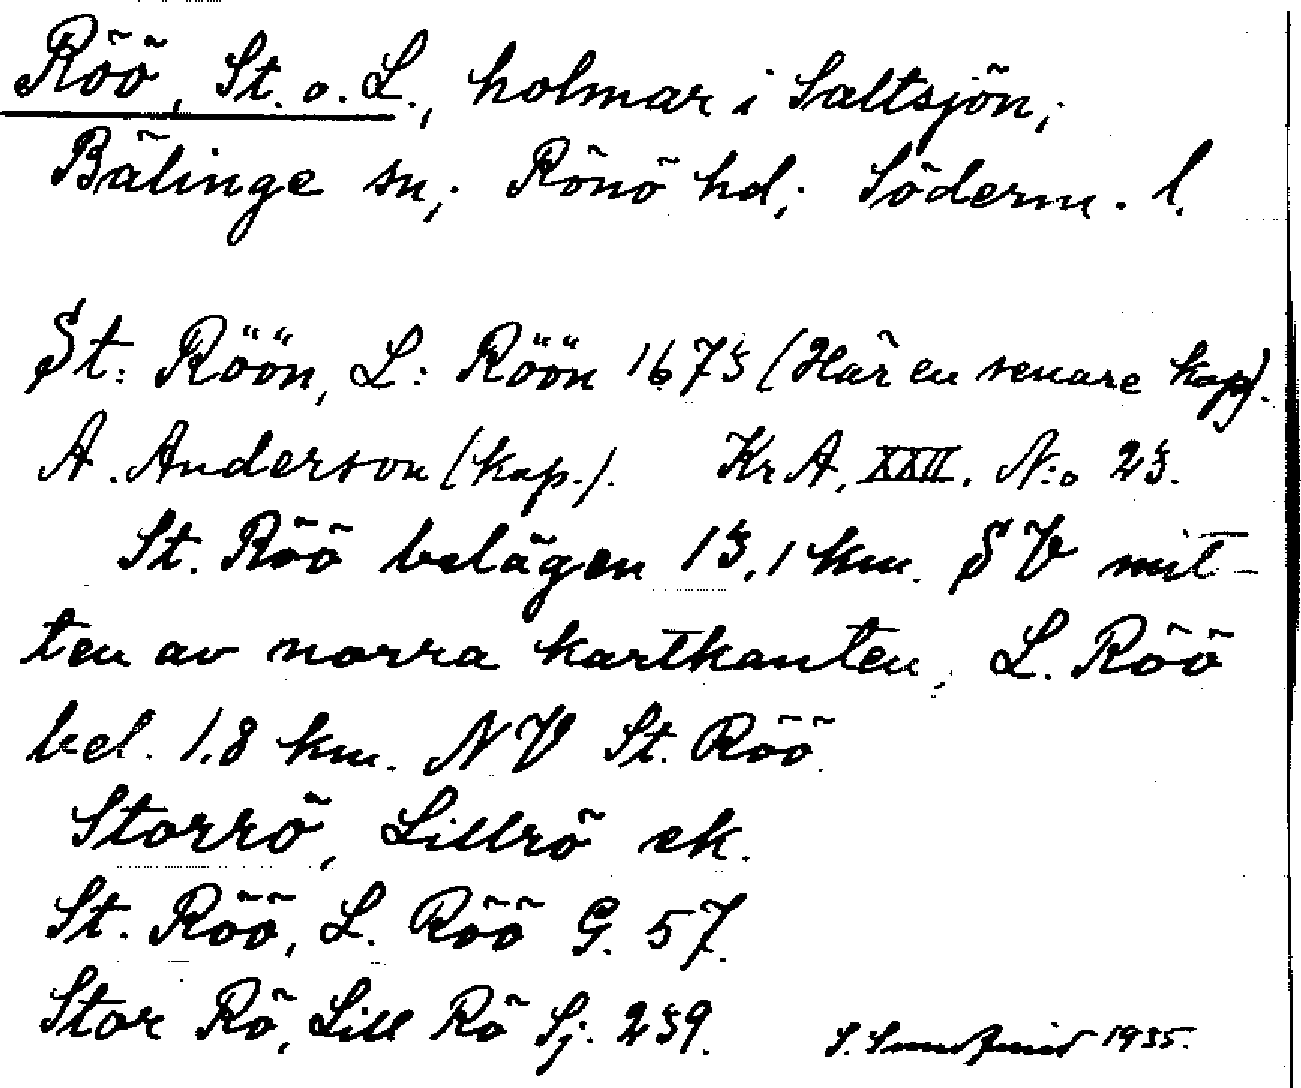 Röö, St. o. L., holmar i Saltsjön;
Bälinge sn; Rönö hd; Söderm. l.
St: Röön, L: Röön 1673 (Här en senare kop).
A. Anderson (kop.). Kr A, XXII. N:o 23.
St. Röö belägen 13,1 km. SV mit-
ten av norra kartkanten, L. Röö
bel. 1,8 km. NV St. Röö.
Storrö, Lillrö ek.
St. Röö, L. Röö G. 57.
Stor Rö, Lill Rö Sj. 239. S. 1935.